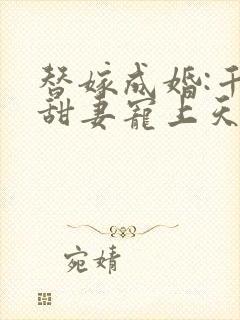 替嫁成婚:千
甜妻宠上天
宛婧